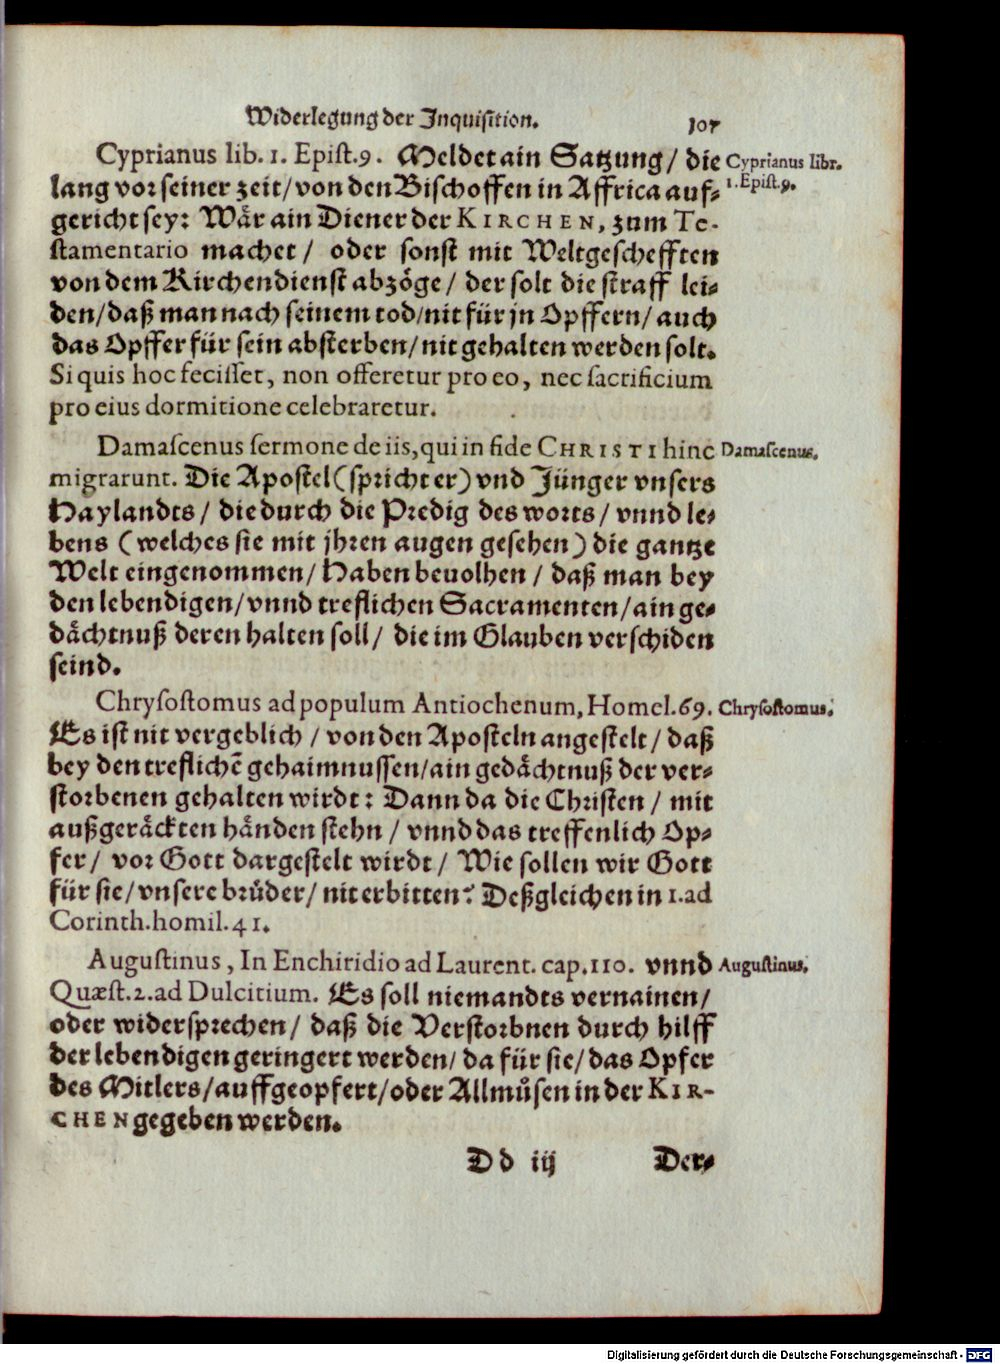 Widerlegung der Inquisition. 107
Cyprianus lib. 1. Epist. 9. Meldet ain Satzung / die
Cyprianus libr.
1. Epist. 9.
lang vor seiner zeit / von den Bischoffen in Affrica auf-
gericht sey: Wär ain Diener der KIRCHEN, zum Te-
stamentario machet / oder sonst mit Weltgeschefften
von dem Kirchendienst abzöge / der solt die straff lei-
den / daß man nach seinem tod / nit für jn Opffern / auch
das Opffer für sein absterben / nit gehalten werden solt.
Si quis hoc fecisset, non offeretur pro eo, nec sacrificium
pro eius dormitione celebraretur.
Damascenus sermone de iis, qui in fide CHRISTI hinc
Damascenus.
migrarunt. Die Apostel (spricht er) vnd Jünger vnsers
Haylandts / die durch die Predig des worts / vnnd le-
bens (welches sie mit jhren augen gesehen) die gantze
Welt eingenommen / Haben beuolhen / daß man bey
den lebendigen / vnnd treflichen Sacramenten / ain ge-
dächtnuß deren halten soll / die im Glauben verschiden
seind.
Chrysostomus ad populum Antiochenum, Homel. 69.
Chrysostomus.
Es ist nit vergeblich / von den Aposteln angestelt / daß
bey den treflichē gehaimnussen / ain gedächtnuß der ver-
storbenen gehalten wirdt: Dann da die Christen / mit
außgeräckten händen stehn / vnnd das treffenlich Op-
fer / vor Gott dargestelt wirdt / Wie sollen wir Gott
für sie / vnsere brůder / nit erbitten? Deßgleichen in 1. ad
Corinth. homil. 41.
Augustinus, In Enchiridio ad Laurent. cap. 110. vnnd
Augustinus.
Quæst. 2. ad Dulcitium. Es soll niemandts vernainen /
oder widersprechen / daß die Verstorbnen durch hilff
der lebendigen geringert werden / da für sie / das Opfer
des Mitlers / auffgeopfert / oder Allmůsen in der KIR-
CHEN gegeben werden.
Dd iij Der-
Digitalisierung gefördert durch die Deutsche Forschungsgemeinschaft - DFG